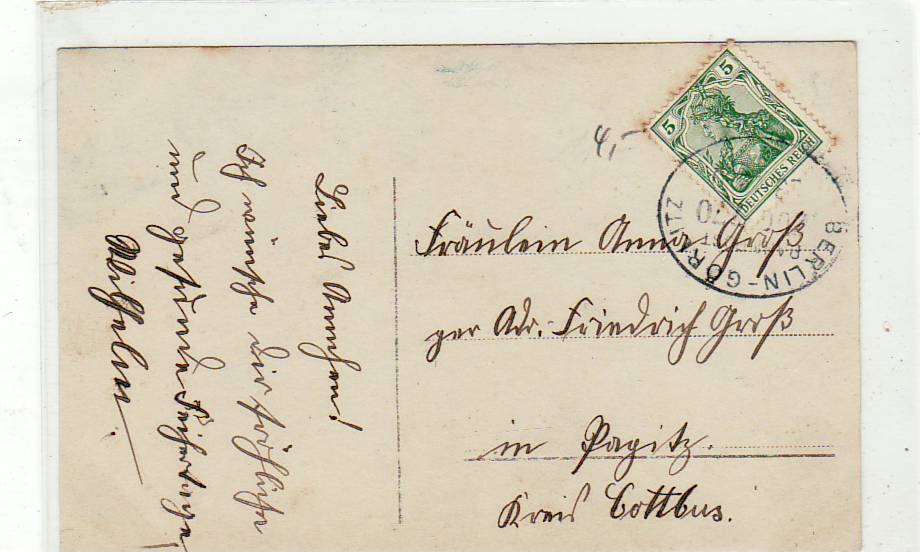 Liebes Annchen!
Ich wünsche dir fröhliche
und gesunde Feiertage!
Wilhelm.
4,-
5
5
DEUTSCHES REICH
BERLIN-GÖRLITZ
Fräulein Anna Groß
per Adr. Friedrich Groß
in Papitz.
Kreis Cottbus.